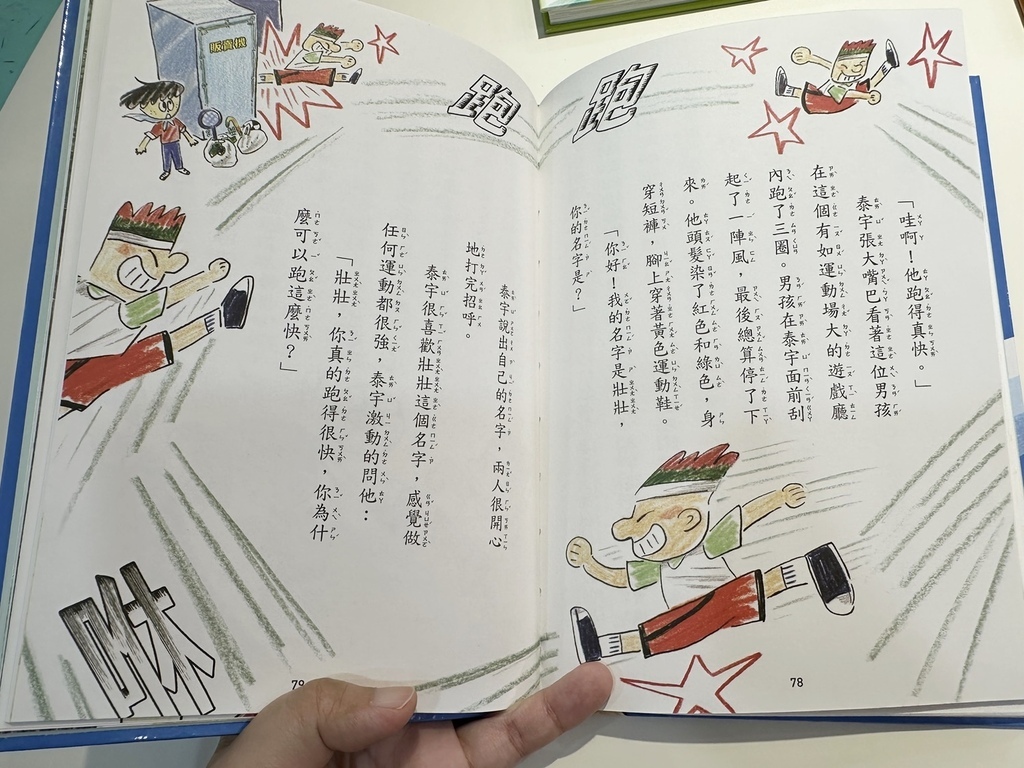 跑
「哇啊！他跑得真快。」
泰宇張大嘴巴看著這位男孩
在這個有如運動場大的遊戲廳
內跑了三圈。男孩在泰宇面前刮
起了一陣風，最後總算停了下
來。他頭髮染了紅色和綠色，身
穿短褲，腳上穿著黃色運動鞋。
「你好！我的名字是壯壯，
你的名字是？」
78
跑
販賣機
泰宇說出自己的名字，兩人很開心
地打完招呼。
泰宇很喜歡壯壯這個名字，感覺做
任何運動都很強，泰宇激動的問他：
「壯壯，你真的跑得很快，你為什
麼可以跑這麼快？」
咻
79